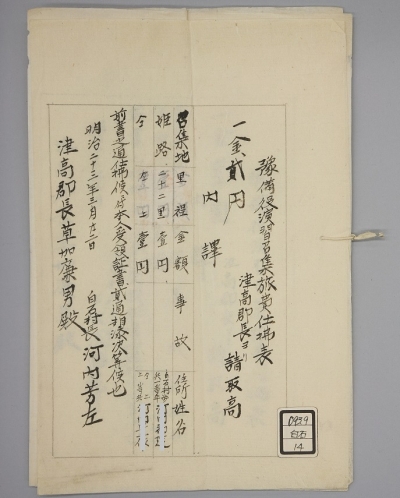 豫備役演習召集旅費仕拂表
津高郡長ヨリ請取高
一金貳円
内譯
召集地 里程 金額 事故 住所姓名
姫路 二十二里 壹円
今 仝上 壹円
前書之通仕拂候ニ付本人受領証書貳通相添次第候也
明治二十三年三月廿一日
白石村長 河内芳左
津高郡長草加廉男殿
0939
白石
14